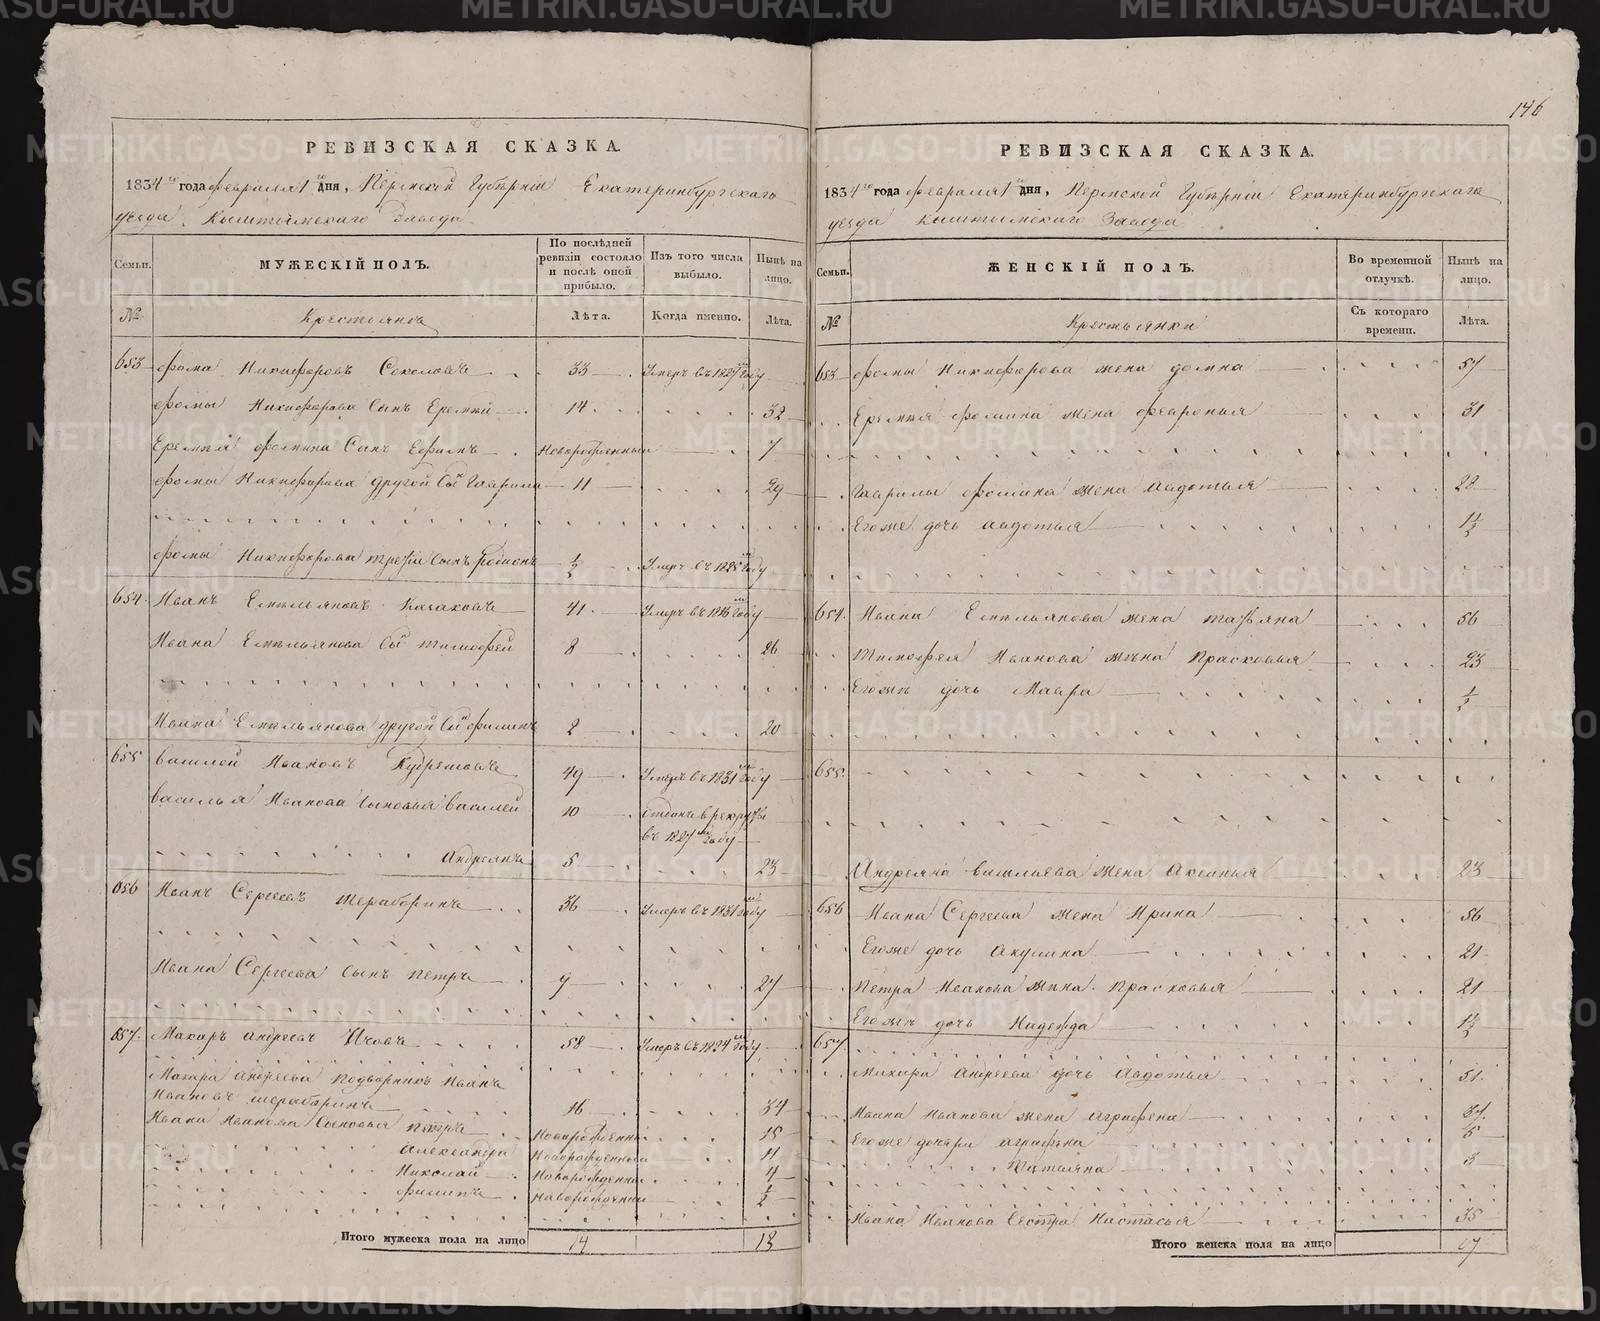 146
РЕВИЗСКАЯ СКАЗКА.
1834 го года февраля 1 го дня, Пермской Губерніи Екатеринбургскаго
уезда Кыштымскаго Завода
Семьи.
МУЖЕСКІЙ ПОЛЪ.
По послѣдней ревизіи состояло и послѣ оной прибыло.
Изъ того числа выбыло.
Нынѣ на лицо.
№
Крестьяна
Лѣта.
Когда именно.
Лѣта.
653 Фома Никифоровъ Соколовъ 33 Умеръ въ 1827 году
Фомы Никифорова Сынъ Еремей 14 32
Еремея Фомина Сынъ Ефимъ Новорожденный 7
Фомы Никифорова другой Сы Гаврила 11 29
Фомы Никифорова третий Сынъ Родионъ ½ Умеръ въ 1825 году
654 Иванъ Емельяновъ Казаковъ 41 Умеръ въ 1816 году
Ивана Емельянова Сы Тимофей 8 26
Ивана Емельянова другой Сы Филипъ 2 20
655 Василей Ивановъ 49 Умеръ въ 1831 году
Василья Иванова Сыновья Василей 10 Отданъ в рекруты
въ 1827 году
Андреянъ 5 23
656 Иванъ Сергеевъ 36 Умеръ въ 1831 году
Ивана Сергеева Сынъ Петръ 9 27
657 Макаръ Андреевъ 58 Умеръ въ 1824 году
Макара Андреева Подворникъ Иванъ
Ивановъ 16 34
Ивана Иванова Сыновья Петръ Новорожденны 15
Александра Новорожденный 11
Николай Новорожденны 4
Филипъ новорожденны ½
Итого мужеска пола на лицо 14 13
РЕВИЗСКАЯ СКАЗКА.
1834 го года февраля 1 го дня, Пермской Губерніи Екатеринбургскаго
уезда Кыштымскаго Завода
Семьи.
ЖЕНСКІЙ ПОЛЪ.
Во временной отлучкѣ.
Нынѣ на лицо.
№
Крестьянки
Съ котораго времени.
Лѣта.
653 Фомы Никифорова жена Домна 57
Еремея Фомина жена Февронья 31
Гаврилы Фомина жена Авдотья 28
Егоже дочь Авдотья 1½
654 Ивана Емельянова жена Татьяна 56
Тимофея Иванова жена Прасковья 23
Егоже дочь Мавра ½
655
Андреяна Васильева жена Аксинья 23
656 Ивана Сергеева жена Ирина 56
Егоже дочь Акулина 21
Петра Иванова жена Прасковья 21
Егоже дочь Надежда 1½
657
Макара Андреева дочь Авдотья 51
Ивана Иванова жена Аграфена 37
Егоже дочери Аграфена 5
Татьяна 3
Ивана Иванова Сестра Настасья 35
Итого женска пола на лицо 17
METRIKI.GASO-URAL.RU